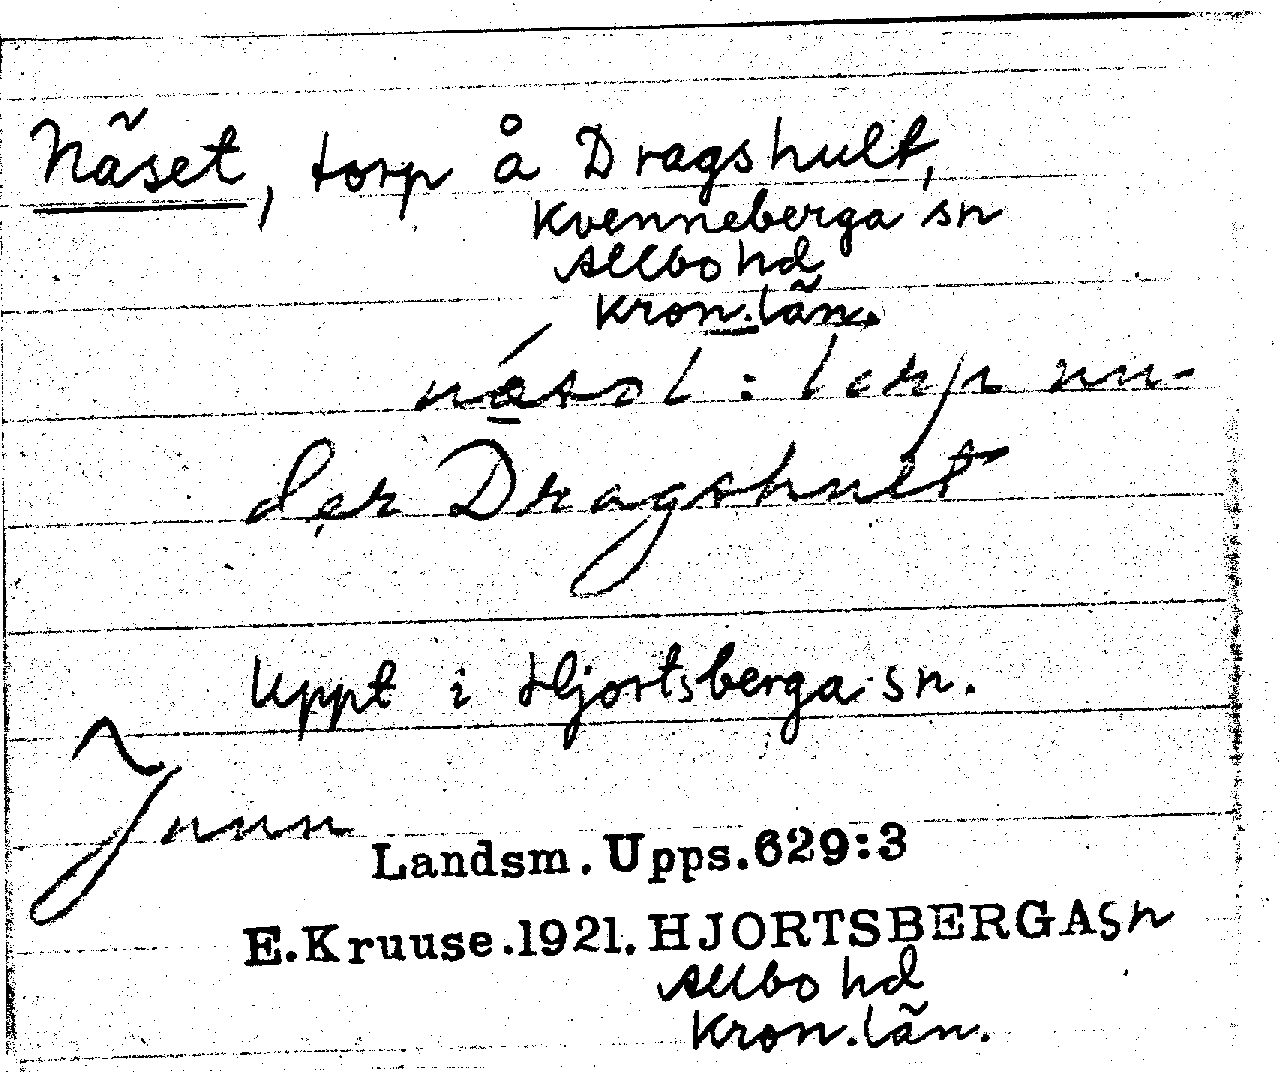 Näset, torp å Dragshult,
Kvenneberga sn
Allbo hd
Kron.län.
: torp un-
der Dragshult
Uppt i Hjortsberga sn.
Landsm. Upps. 629:3
E. Kruuse. 1921. HJORTSBERGA sn
Allbo hd
Kron.län.